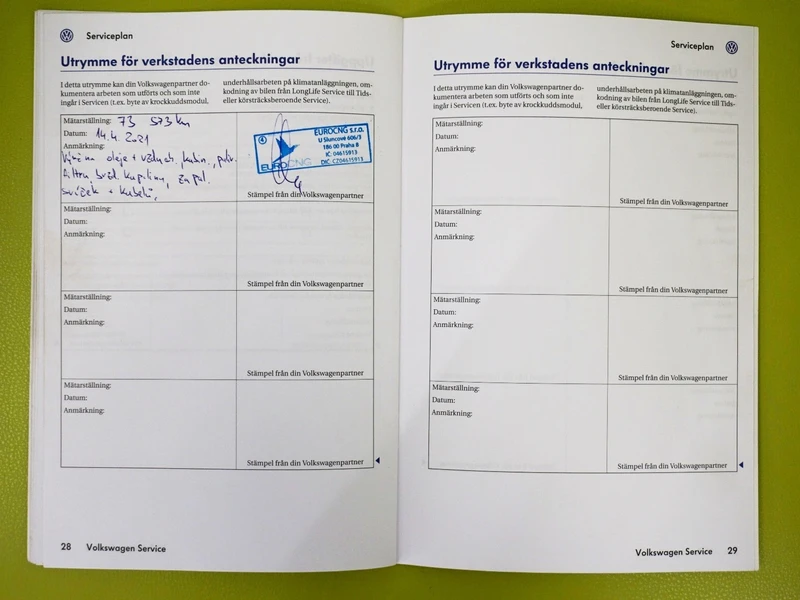 Serviceplan
Utrymme för verkstadens anteckningar
I detta utrymme kan din Volkswagenpartner do-
kumentera arbeten som utförts och som inte
ingår i Servicen (t.ex. byte av krockkuddsmodul,
underhållsarbeten på klimatanläggningen, om-
kodning av bilen från LongLife Service till Tids-
eller körsträcksberoende Service).
Mätarställning: 73 573 km
Datum: 14.4.2021
Anmärkning:
Výměna oleje + vzduch. kabin., paliv.
filtru, brzd. kapaliny, zapal.
svíček
4
EUROCNG s.r.o.
U Sluncové 606/3
186 00 Praha 8
IČ: 04615913
DIČ: CZ04615913
EUROCNG
Stämpel från din Volkswagenpartner
Mätarställning:
Datum:
Anmärkning:
Stämpel från din Volkswagenpartner
Mätarställning:
Datum:
Anmärkning:
Stämpel från din Volkswagenpartner
Mätarställning:
Datum:
Anmärkning:
Stämpel från din Volkswagenpartner
28 Volkswagen Service
Serviceplan
Utrymme för verkstadens anteckningar
I detta utrymme kan din Volkswagenpartner do-
kumentera arbeten som utförts och som inte
ingår i Servicen (t.ex. byte av krockkuddsmodul,
underhållsarbeten på klimatanläggningen, om-
kodning av bilen från LongLife Service till Tids-
eller körsträcksberoende Service).
Mätarställning:
Datum:
Anmärkning:
Stämpel från din Volkswagenpartner
Mätarställning:
Datum:
Anmärkning:
Stämpel från din Volkswagenpartner
Mätarställning:
Datum:
Anmärkning:
Stämpel från din Volkswagenpartner
Mätarställning:
Datum:
Anmärkning:
Stämpel från din Volkswagenpartner
Volkswagen Service 29